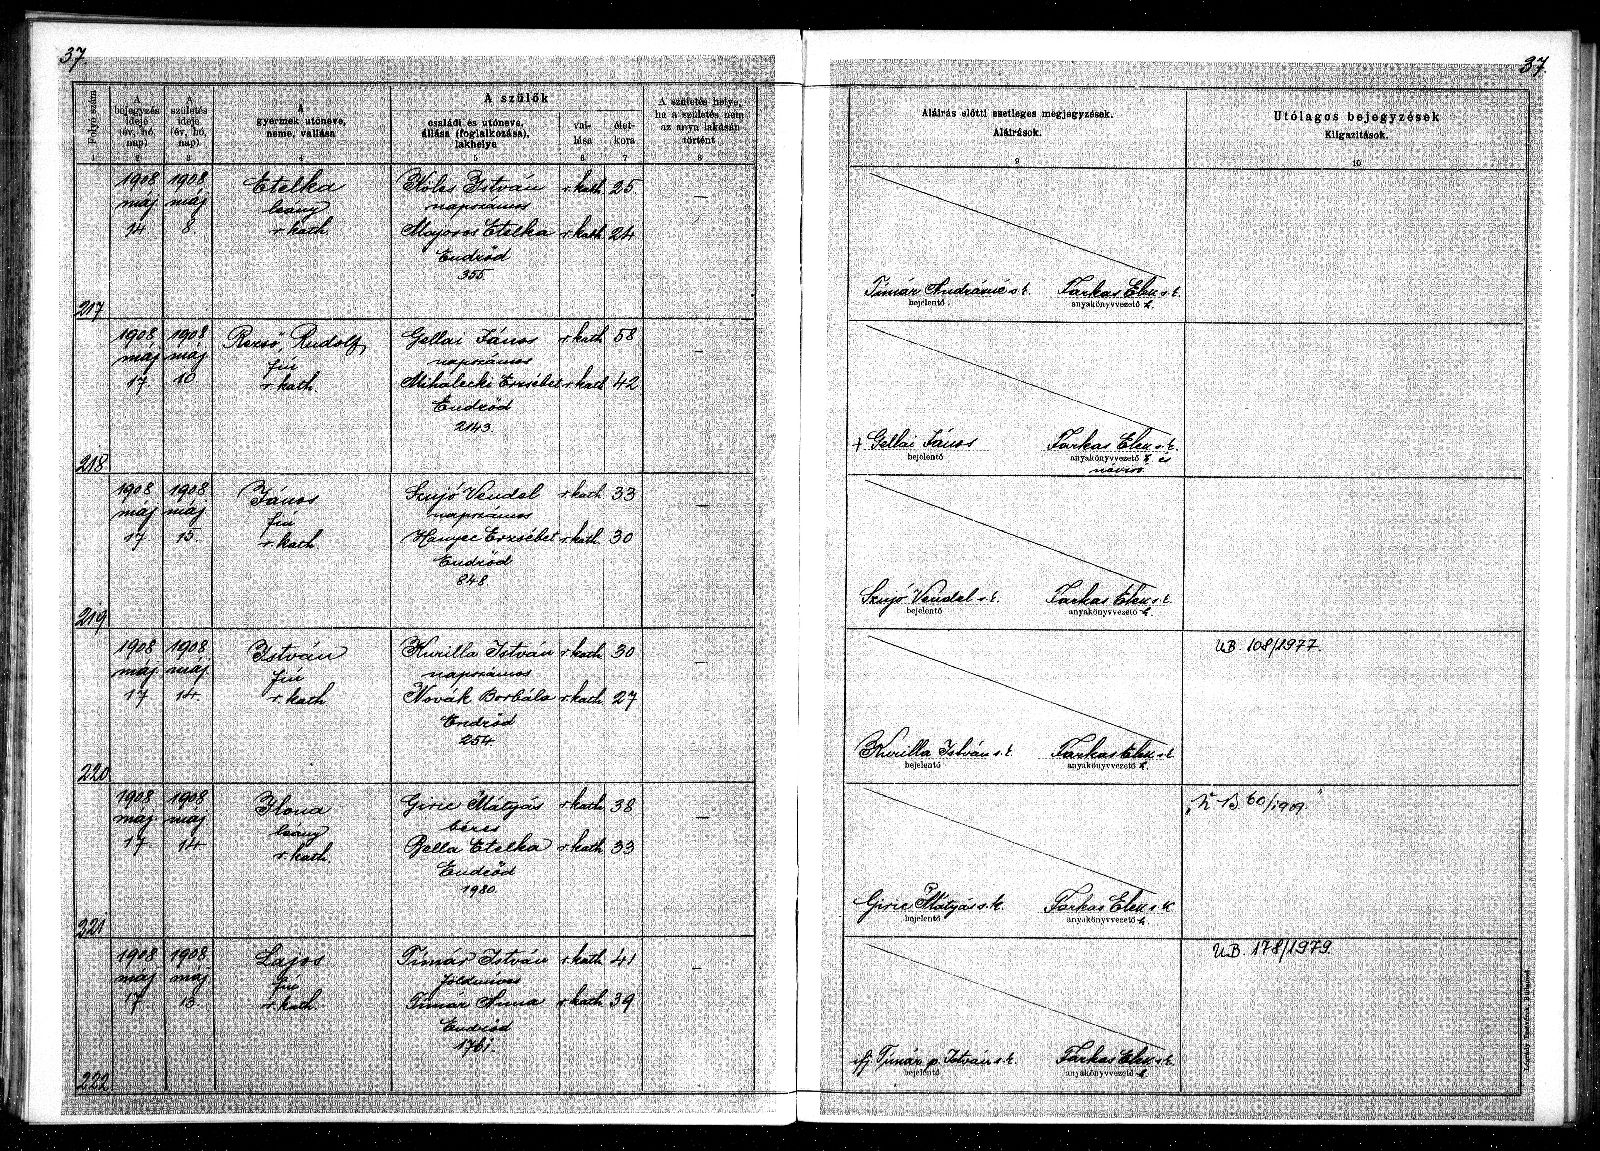 37.
37.
Folyó szám
A bejegyzés ideje (év, hó, nap)
A születés ideje (év, hó, nap)
A gyermek utóneve, neme, vallása
A szülők
családi és utóneve, állása (foglalkozása), lakhelye
vallása
életkora
A születés helye, ha a születés nem az anya lakásán történt
Aláirás előtti esetleges megjegyzések.
Aláirások.
Utólagos bejegyzések
Kiigazitások.
1 2 3 4 5 6 7 8 9 10
217
1908 máj 14
1908 máj 8
Etelka
leány
r. kath
István r kath 25
napszámos
Majoros Etelka r kath 24
Endrőd
355.
—
Timár Andrásné s.k.
bejelentő
Farkas Elek s.k.
anyakönyvvezető h.
218
1908 máj 17
1908 máj 10
Rezső Rudolf
fiú
r. kath
Gellai János r kath 58
napszámos
Mihalecki Erzsébet r kath 42
Endrőd
2143.
—
+ Gellai János
bejelentő
Farkas Elek s.k.
anyakönyvvezető h. és
névíró
219
1908 máj 17
1908 máj 15.
János
fiú
r. kath
Szujó Vendel r kath 33
napszámos
Hanyec Erzsébet r. kath. 30
Endrőd
848.
—
Szujó Vendel s.k.
bejelentő
Farkas Elek s.k.
anyakönyvvezető h.
220
1908 máj 17
1908 máj 14.
István
fiú
r. kath
Kurilla István r kath 30
napszámos
Novák Borbála r kath 27
Endrőd
254.
—
Kurilla István s.k.
bejelentő
Farkas Elek s.k.
anyakönyvvezető h.
UB. 108/1977.
221
1908 máj 17
1908 máj 14
Ilona
leány
r. kath.
Giric Mátyás r kath. 38
béres
Bella Etelka r kath 33
Endrőd
1980.
—
Giric Mátyás s.k.
bejelentő
Farkas Elek s.k.
anyakönyvvezető h.
60/1909.
222
1908 máj 17
1908 máj 13
Lajos
fiú
r. kath.
Timár István r kath. 41
földmíves
Timár Anna r kath 39
Endrőd
1761.
—
ifj Timár p. István s.k.
bejelentő
Farkas Elek s.k.
anyakönyvvezető h.
UB. 178/1979.